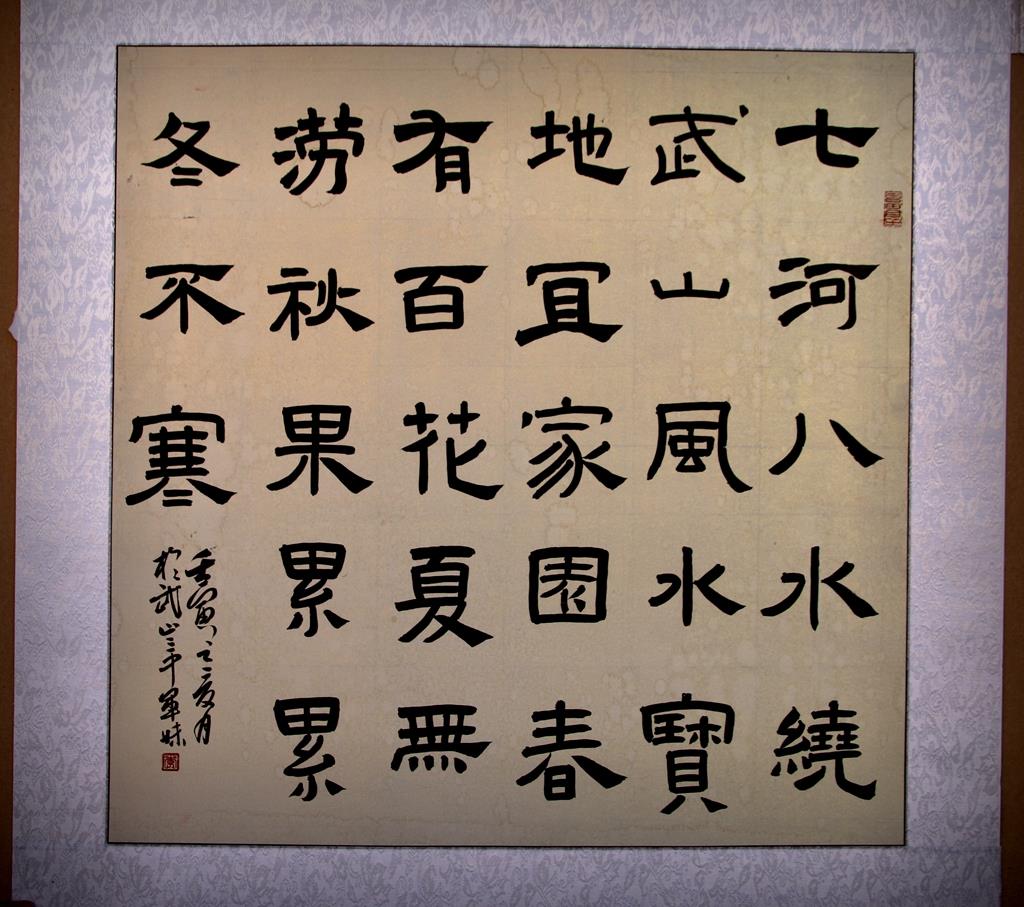 七河八水繞
武山風水寶
地宜家園春
有百花夏無
涝秋果累累
冬不寒
壬寅之夏月
於武山